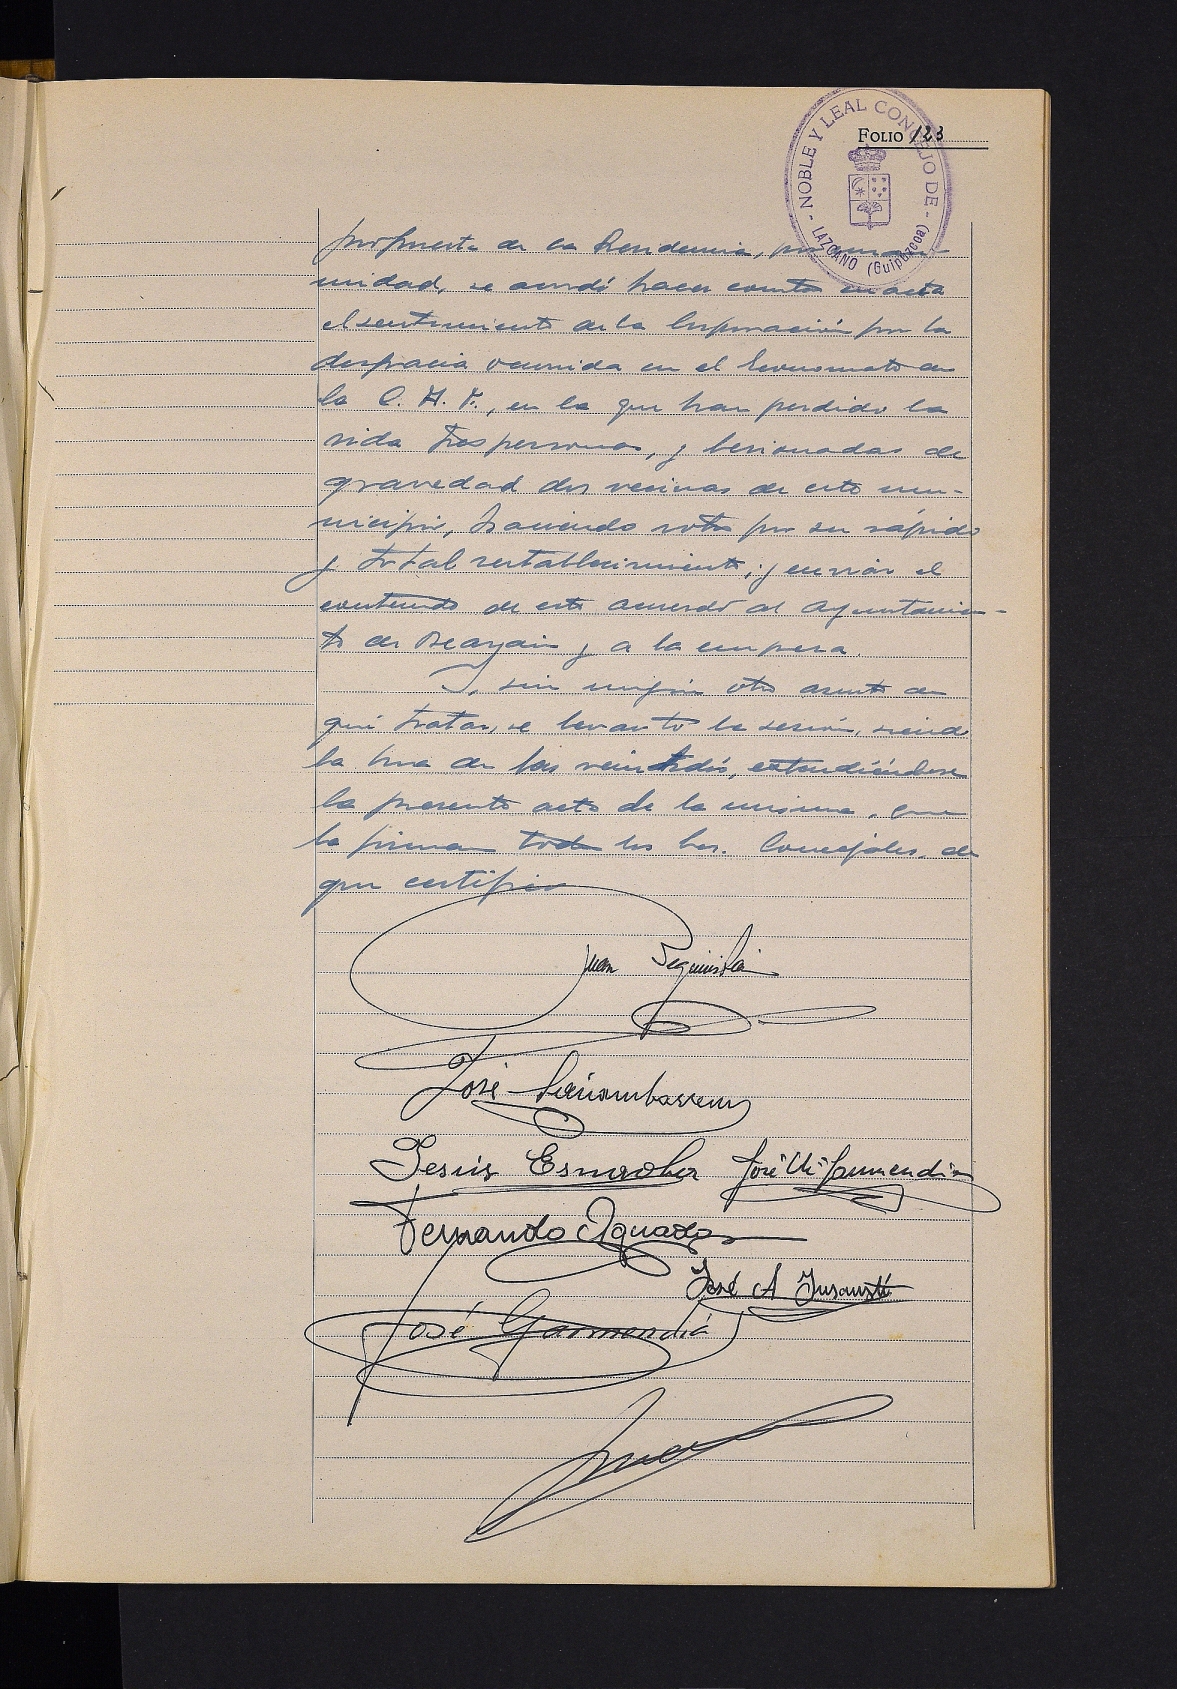 NOBLE Y LEAL CONCEJO DE LAZCANO (Guipúzcoa)
FOLIO 123
propuesta de la Presidencia, por una-
nidad, se acordó hacer constar en acta
el sentimiento de la Corporación por la
desgracia ocurrida en el Economato de
la C. A. F., en la que han perdido la
vida tres personas, y lesionadas de
gravedad dos vecinas de este mu-
nicipio, haciendo votos por su rápido
y total restablecimiento, y enviar el
contenido de este acuerdo al Ayuntamien-
to de Beasain y a la empresa.
Y, sin ningún otro asunto de
qué tratar, se levantó la sesión, siendo
la hora de las veintidós, extendiéndose
la presente acta de la misma, que
la firman todos los Srs. Concejales, de
que certifico
Juan
José
Jesús José Mª Garmendia
Fernando Aguado
José A Insausti
José Garmendia